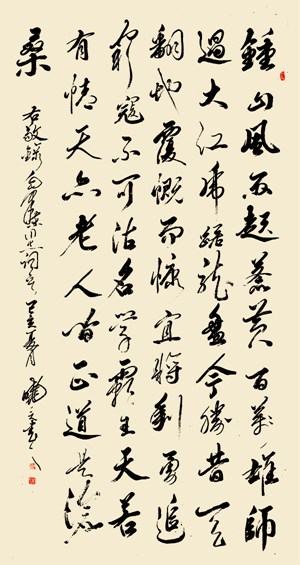 鍾山風雨起蒼黄百萬雄師
過大江虎踞龍盤今勝昔天
翻地覆慨而慷宜將剩勇追
窮寇不可沽名學霸王天若
有情天亦老人間正道是滄
桑
右敬錄毛澤東同志詞